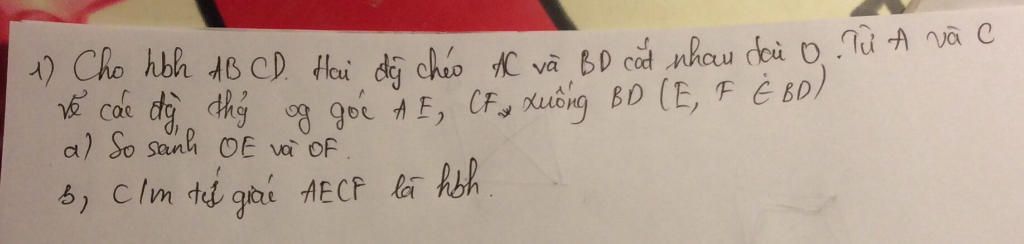 1) Cho hbh ABCD. Hai đg chéo AC và BD cắt nhau tại O. Từ A và C
vẽ các đg thg vg góc AE, CF xuống BD (E, F ∈ BD)
a) So sánh OE và OF.
b, C/m tứ giác AECF là hbh.